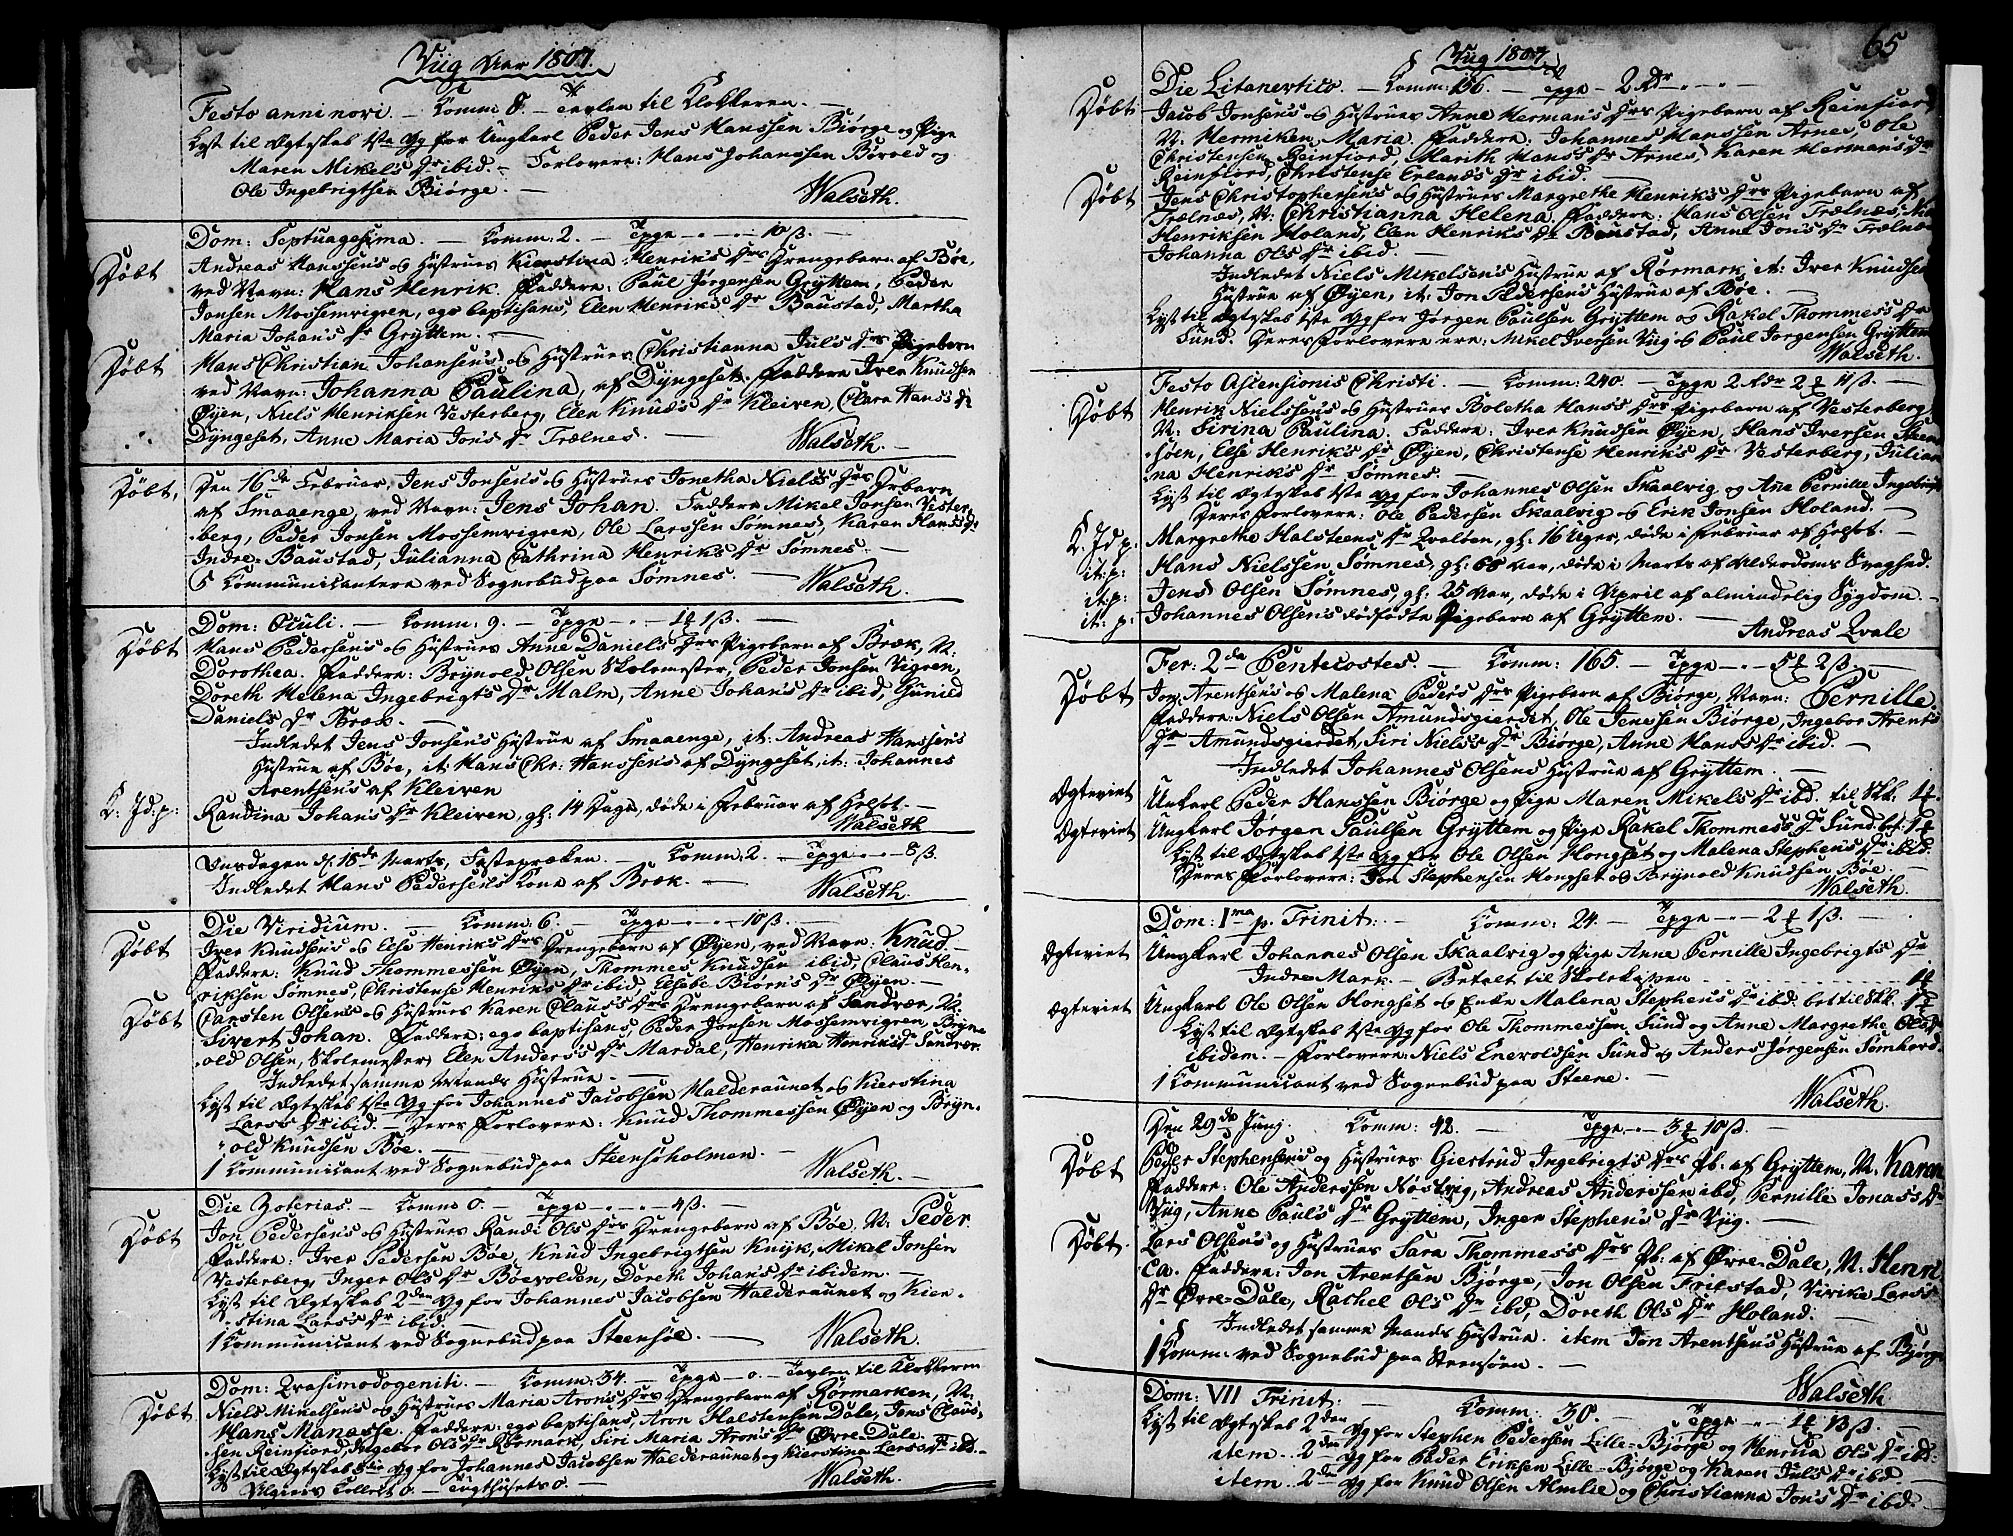 Viig Aar 1807.
Festo anni novi. — Comm: 8. — Tavlen til Klokkeren. —
Lyst til Ægteskab 1ste Gg for Ungkarl Peder Jens Hanssen Biørge og Pige
Maren Mikels Dr ibid. — Forlovere: Hans Johanssen Bøvold og
Ole Ingebrigtsen Biørge. —
Walseth.
Dom: Septuagesima. — Comm: 2. — Tpge — " — 10 ß. —
Døbt Andreas Hanssen's og Hustrues Kierstina Henrik's Drs Drengebarn af Bøe,
ved Navn: Hans Henrik. Faddere: Paul Jørgensen Gryttem, Peder
Jonsen Mossemvigren, ego baptisans, Elen Henrik's Dr Baustad, Martha
Maria Johan's Dr Gryttem. —
Døbt Hans Christian Johansen's og Hustrues Christianna Jul's Drs Pigebarn
ved Navn: Johanna Paulina, af Dyngeset. Faddere Iver Knudsen
Øyen, Niels Henriksen Vesterberg, Elen Knud's Dr Kleiven, Clara Hans's Dr
Dyngeset, Anne Maria Jon's Dr Trælnes. —
Walseth.
Døbt, Den 16de Februar, Jens Jonsen's og Hustrues Jonetha Niels's Drs Drbarn
af Smaaenge, ved Navn: Jens Johan. Faddere Mikel Jonsen Vester-
berg, Peder Jonsen Mossemvigren, Ole Larssen Sømnes, Karen Hans's Dr
Indre-Baustad, Julianna Cathrina Henrik's Dr Sømnes. —
5 Communicantere ved Sognebud paa Sømnes. —
Walseth.
Dom: Oculi. — Comm: 9. — Tpge — " — 1 ß. —
Døbt Hans Pedersen's og Hustrues Anne Daniels Drs Pigebarn af Bræk, N:
Dorothea. Faddere: Brynold Olsen Skolemester, Peder Jonsen Vigren,
Doreth Helena Ingebrigts Dr Malm, Anne Johan's Dr ibid, Gunild
Daniels Dr Bræk. —
Indledet Jens Jonsen's Hustrue af Smaaenge, it: Andreas Hanssen's
Hustrue af Bøe, it: Hans Chr: Hanssen's af Dyngeset, it: Johannes
Arentsen's af Kleiven
C. Jd. p: Randina Johan's Dr Kleiven, gl: 14 Dage, døde i Februar af Helsot. —
Walseth
Onsdagen d. 18de Marts, Fastepræken. — Comm: 2. — Tpge — " — 8 ß.
Indledet Hans Pedersen's Kone af Bræk. —
Walseth.
Die Viridium. — Comm: 6. — Tpge — " — 10 ß. —
Døbt Iver Knudsen's og Else Henriks Drs Drengebarn af Øyen, ved Navn: Knud. —
Faddere: Knud Thommessen Øyen, Thommes Knudsen ibid, Claus Hen-
riksen Sømnes, Christense Henriks Dr ibid, Elsebe Biørn's Dr Øyen. —
Døbt Carsten Olsen's og Hustrues Karen Claus's Drs Drengebarn af Sandvær, N:
Sivert Johan. Faddere: ego baptisans, Peder Jonsen Mossemvigren, Bryn-
old Olsen, Skolemester, Elen Anders's Dr Mardal, Henrika Henriks Dr Sandvær.
Indledet samme Mands Hustrue. —
Lyst til Ægteskab 1ste Gg for Johannes Jacobsen Halderaunet og Kierstina
Lars's Dr ibid. — Deres Forlovere: Knud Thommessen Øyen og Bryn-
old Knudsen Bøe. —
1 Communicant ved Sognebud paa Steensholmen. —
Walseth. —
Die Zoterias. — Comm: 0. — Tpge — " — 4 ß. —
Døbt Jon Pedersen's og Hustrues Randi Ols Drs Drengebarn af Bøe. N: Peder.
Faddere: Iver Pedersen Bøe, Knud Ingebrigtsen Knyk, Mikel Jonsen
Vesterberg, Inger Ols Dr Bøevolden, Doreth Johan's Dr ibidem. —
Lyst til Ægteskab 2den Gg for Johannes Jacobsen Halderaunet og Kier-
stina Lars's Dr ibid. —
1 Communicant ved Sognebud paa Steensøe. —
Walseth.
Dom: Qvasimodogeniti. — Comm: 34. — Tpge — 0. — Tavlen til Klokkeren
Døbt Niels Mikelsen's og Hustrues Maria Aron's Drs Drengebarn af Rørmarken, N:
Hans Manasse. Faddere: ego baptisans, Aron Halstensen Dale, Jens Claus-
sen Reinfiord, Ingebor Ols Dr Rørmark, Siri Maria Aron's Dr Øvre-Dale.
Lyst til Ægteskab 3die Gg for Johannes Jacobsen Halderaunet og Kierstina Lars's Dr ibd. —
Collect 0. — Tugthuset 0. —
Walseth.
Viig 1807.
65
Die Litanevtico. — Comm: 156. — Tpge — 2 Rdr — " — " —
Døbt Jacob Jonsen's og Hustrues Anne Herman's Drs Pigebarn af Reinfiord
N: Hermiken Maria. Faddere: Johannes Hanssen Arnes, Ole
Christensen Reinfiord, Marith Hans's Dr Arnes, Karen Hermans Dr
Reinfiord, Christense Erlands Dr ibid. —
Døbt Jens Christophersen's og Hustrues Margrethe Henriks Drs Pigebarn af
Trælnes, N: Christianna Helena. Faddere: Hans Olsen Trælnes,
Henriksen Holand, Elen Henrik's Dr Baustad, Anne Jon's Dr Trælnes
Johanna Ols Dr ibid. —
Indledet Niels Mikelsen's Hustrue af Rørmark, it: Iver Knudsen
Hustrue af Øyen, it: Jon Pedersens Hustrue af Bøe. —
Lyst til Ægteskab 1ste Gg for Jørgen Paulsen Gryttem og Rakel Thommes's Dr
Sund. Deres Forlovere ere: Mikel Iversen Viig og Paul Jørgensen Gryttem
Walseth.
Festo Ascensionis Christi. — Comm: 240. — Tpge 2 Rdr 2 11 ß. —
Døbt Henrik Nielssen's og Hustrues Boletha Hans's Drs Pigebarn af Vesterberg
N: Sirina Paulina. Faddere: Iver Knudsen Øyen, Hans Iversen Steen-
søen, Else Henrik's Dr Øyen, Christense Henrik's Dr Vesterberg, Julian-
na Henrik's Dr Sømnes. —
Lyst til Ægteskab 1ste Gg for Johannes Olsen Skaalvig og Ane Pernille Ingebrigts
Deres Forlovere: Ole Pedersen Skaalvig og Erik Jonsen Holand. —
C. Jd. p: Margrethe Halsteens Dr Qvelten, gl: 16 Uger, døde i Februar af Helsot. —
it: p: Hans Nielssen Sømnes, gl: 68 Aar, døde i Marts af Alderdoms Svaghed.
it: p: Jens Olsen Sømnes, gl: 25 Aar, døde i April af almindelig Sygdom. —
it: p: Johannes Olsen's dødfødte Pigebarn af Gryttem. —
Andreas Qvale
Fer: 2da Pentecostes. — Comm: 165. — Tpge — " — 5 2 ß. —
Døbt Jon Arentsen's og Malena Peder's Drs Pigebarn af Biørge, Navn: Pernille.
Faddere: Niels Olsen Amundsgierdet, Ole Jenssen Biørge, Ingebor Arents
Dr Amundsgierdet, Siri Niels's Dr Biørge, Anne Hans's Dr ibid. —
Indledet Johannes Olsens Hustrue af Gryttem. —
Ægteviet Unkarl Peder Hanssen Biørge og Pige Maren Mikels Dr ibd. til Skk: 1
Ægteviet Ungkarl Jørgen Paulsen Gryttem og Pige Rakel Thommes's Dr Sund. bet: 1
Lyst til Ægteskab 1ste Gg for Ole Olsen Hongset og Malena Stephens Dr ibid.
Deres Forlovere: Jon Stephensen Hongset og Brynold Knudsen Bøe. —
Walseth.
Dom: 1ma p. Trinit: — Comm: 24. — Tpge — " — 2 1 ß. —
Ægteviet Ungkarl Johannes Olsen Skaalvig og Pige Anne Pernille Ingebrigts Dr
Indre-Mark. — Betalt til Skolekassen 1
Ægteviet Ungkarl Ole Olsen Hongset og Enke Malena Stephens Dr ibd. bet til Skk. 1
Lyst til Ægteskab 1ste Gg for Ole Thommessen Sund og Anne Margrethe Ols Dr
ibidem. — Forlovere: Niels Enevoldsen Sund og Anders Jørgensen Sømhovd.
1 Communicant ved Sognebud paa Steene. —
Walseth.
Den 29de Junj. Comm: 42. — Tpge — " — 3 10 ß. —
Døbt Peder Stephensen's og Hustrues Giertrud Ingebrigts Drs Pb. af Gryttem, N. Karen
Faddere: Ole Anderssen Nøstvig, Andreas Anderssen ibd, Pernille Jonas's Dr
Viig, Anne Paul's Dr Gryttem, Inger Stephen's Dr Viig. —
Døbt. Lars Olsen's og Hustrues Sara Thommes's Drs Pb. af Øvre-Dale, N. Henri-
ca. Faddere: Jon Arentsen Bjørge, Jon Olsen Friestad, Virike Lars's
Dr Øvre-Dale, Rachel Ols Dr ibd, Doreth Ols Dr Holand. —
Indledet samme Mands Hustrue. item Jon Arentsen's Hustrue af Bjørge
1 Comm: ved Sognebud paa Steensøen. —
Walseth
Dom: VII Trinit: Comm: 30. — Tpge — " — 1 13 ß. —
Lyst til Ægteskab 2den Gg for Stephen Pedersen Lille-Bjørge og Henrica Ols Dr ibd:
item.. 2den Gg for Peder Eriksen Lille-Bjørge og Karen Juls Dr ibd
item.. 2den Gg for Knud Olsen Almlie og Christianna Jon's Dr ibd.